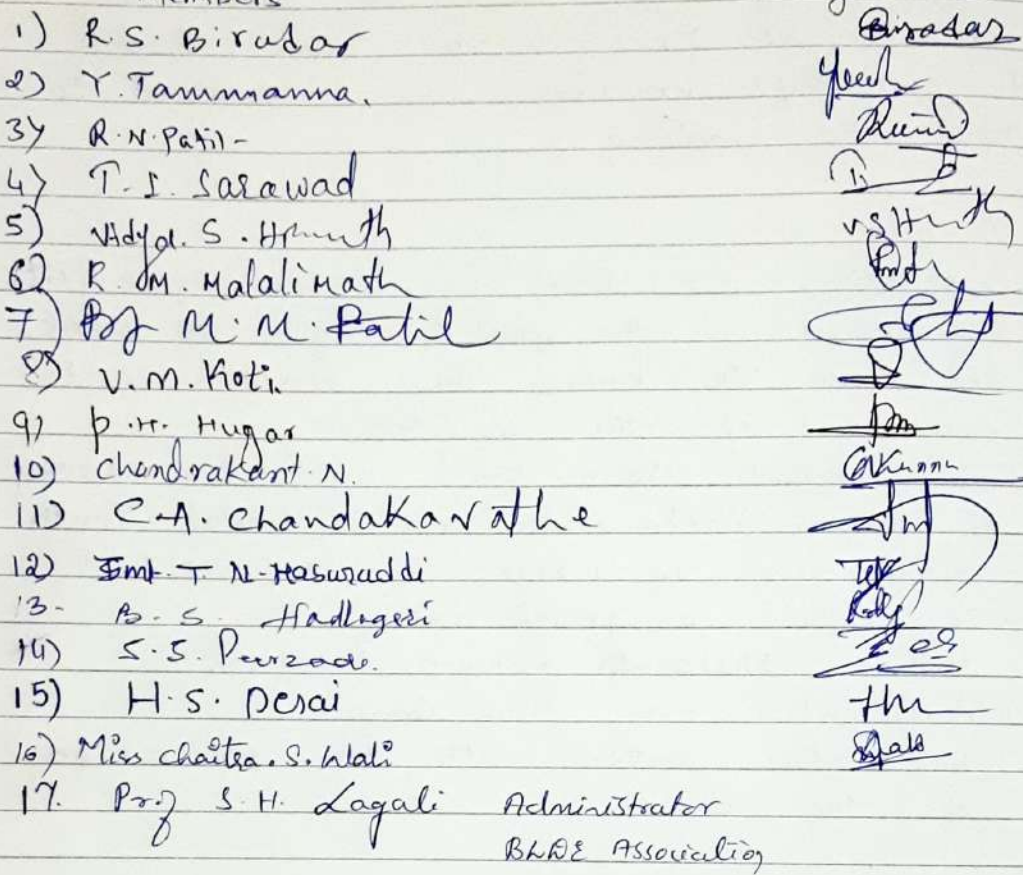 1) R.S. Biradar Biradar
2) Y. Tammanna.
3) R.N. Patil -
4) T.S. Sarawad
5) Vidya. S. Hiremath VSHmth
6) R.M. Malalimath
7) M.M. Patil
8) V.M. Koti.
9) P.H. Hugar
10) Chandrakant N.
11) C.A. Chandakavathe
12) Smt. T N. Hasuraddi
13- B.S. Hadlageri
14) S.S. Peerzade.
15) H.S. Desai
16) Miss Chaitra. S. Wali
17. Prof S.H. Lagali Administrator
BLDE Association